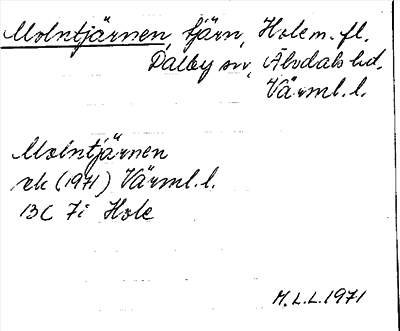 Molntjärnen, tjärn, Hole m. fl.
Dalby sn, Älvdals hd.
Värml. l.
Molntjärnen
ek (1971) Värml. l.
13C 7i Hole
M.L.L. 1971